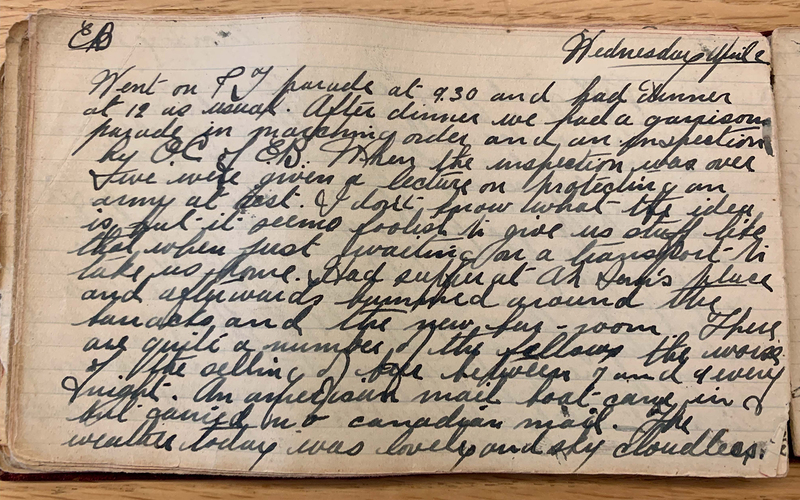 EB
Wednesday April 2
Went on P T parade at 9.30 and had dinner
at 12 as usual. After dinner we had a garrison
parade in marching order and an inspection
by O.C. of E.B. When the inspection was over
we were given a lecture on protecting an
army at rest. I don't know what the idea
is but it seems foolish to give us stuff like
that when just waiting on a transport to
take us home. Had supper at Ah place
and afterwards bummed around the
barracks and the new bar-room. There
are quite a number of the fellows the worse
of the selling of beer between 7 and 9 every
night. An american mail boat came in
but carried no canadian mail. The
weather today was lovely and sky cloudless.